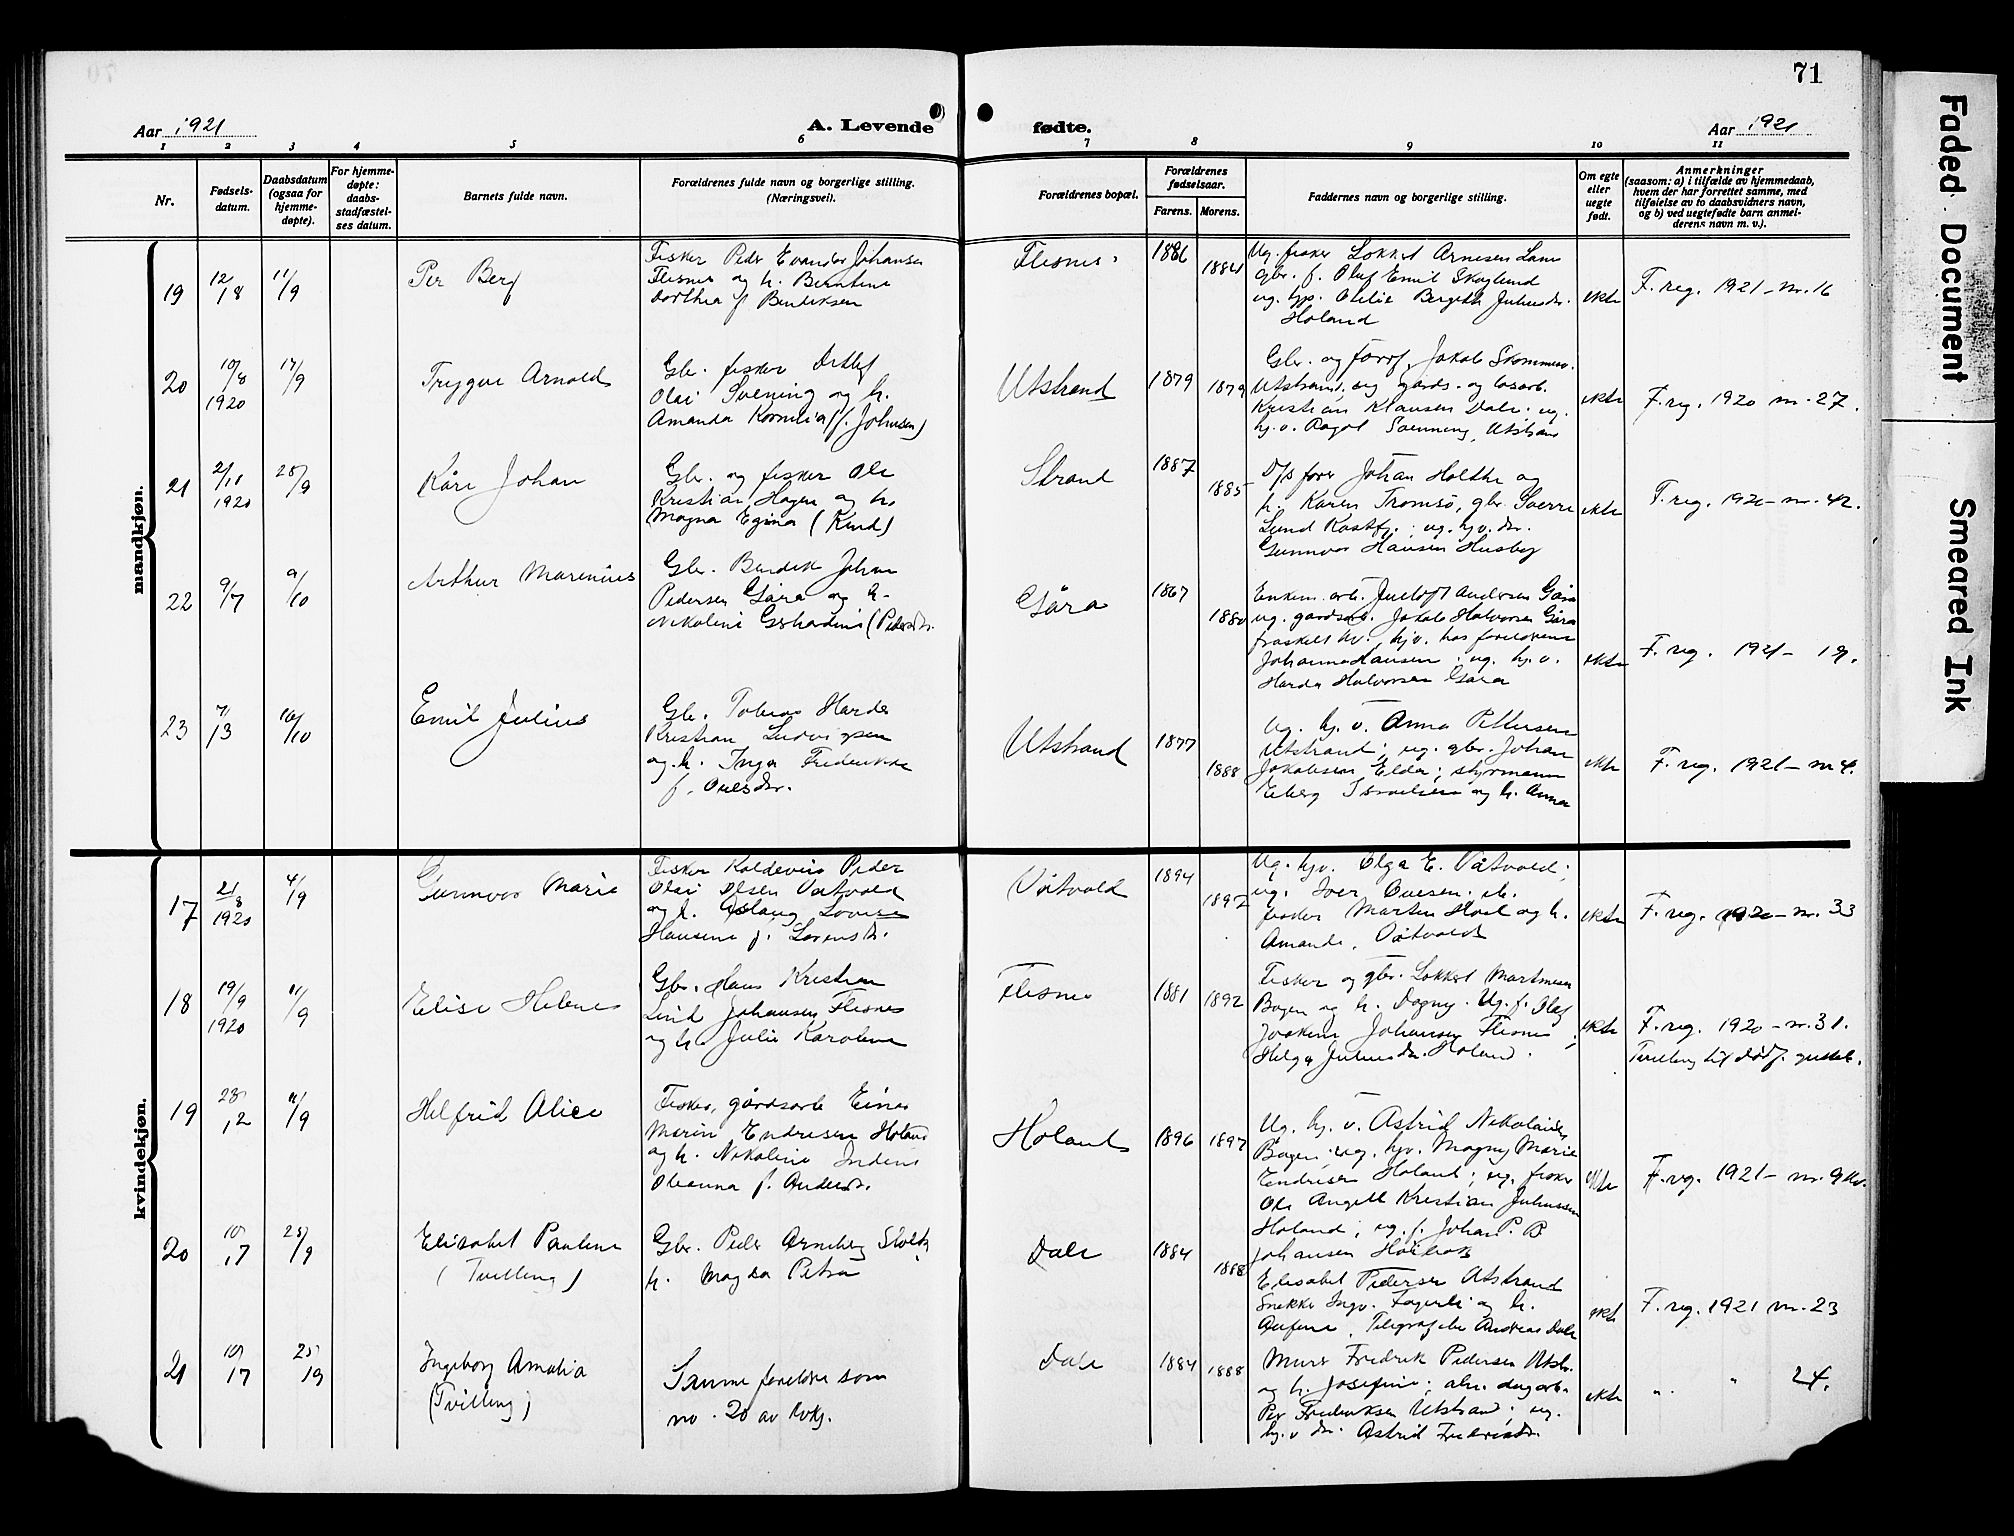 71
Aar 1921
A. Levende fødte.
Aar 1921
1 2 3 4 5 6 7 8 9 10 11
Nr.
Fødsels-
datum.
Daabsdatum
(ogsaa for
hjemme-
døpte).
For hjemme-
døpte:
daabs-
stadfæstel-
ses datum.
Barnets fulde navn.
Forældrenes fulde navn og borgerlige stilling.
(Næringsvei).
Forældrenes bopæl.
Forældrenes
fødselsaar.
Farens. Morens.
Faddernes navn og borgerlige stilling.
Om egte
eller
uegte
født.
Anmerkninger
(saasom: a) i tilfælde av hjemmedaab,
hvem der har forrettet samme, med
tilføielse av to daabsvidners navn,
og b) ved uegtefødte barn anmel-
derens navn m. v.).
mandkjøn.
19
12/8
11/9
Per Berg
Fisker Peder Evander Johansen
Flesnes og h. Berntine
Dorthea f Bendiksen
Flesnes
1886
1884
Ug. fisker Lokkert Arnesen Lam
gbr. f. Olaf Emil Skoglund
ug. Otelie Bergitte Juliusdr.
Holand
ekte
F. reg. 1921 - nr. 16
20
10/8
1920
17/9
Trygve Arnold
Gbr. fisker Detlef
Olai Svening og h.
Amanda Kornelia (f. Johnsen)
Utstrand
1879
1879
Gbr. og forrf. Jakob
Utstrand, ug gards- og
Kristian Klausen Dale; ug.
hj.v. Ragot Svenning, Utstrand
ekte
F. reg. 1920 nr. 27.
21
2/11
1920
25/9
Kåre Johan
Gbr. og fisker Ole
Kristian Hagen og h.
Magna Egina (Kind)
Strand
1887
1885
D/s fører Johan Holthe og
h. Karen Tromsø, gbr. Sverre
Lund Kastfj.; ug. hjv. dr.
Gunnvor Hansen Husby
ekte
F. reg. 1920 - nr. 42.
22
9/7
9/10
Arthur Marenius
Gbr. Bendik Johan
Pedersen Gåra og h.
Nikoline Gerhardine (Pedersdr.
Gåra
1867
1880
Enkem. arb. Andersen Gåra
ug. gardsarb. Jakob Halvorsen Gåra
fraskilt hjv. hos foreldrene
Johanna Hansen; ug. hj. v.
Harda Halvorsen Gåra
ekte
F. reg. 1921 - 19.
23
7/3
16/10
Emil Julius
Gbr. Tobias Harder
Kristian Ludvigsen
og h. Inga Fredrikke
f. Ovesdr.
Utstrand
1877
1888
Ug. hj. v. Anna Pettersen
Utstrand; ug. gbr. Johan
Jakobsen Elde; styrmann
Eberg Israelsen og h. Anna
ekte
F. reg. 1921 - nr 4.
kvindekjøn.
17
21/8
1920
4/9
Gunnvor Marie
Fisker Koldevin Peder
Olai Olsen Våtvold
og h. Aslaug Lovise
Hansine f. Lorensdr.
Våtvold
1894
1892
Ug. hjv. Olga E. Våtvold;
ug. Iver Ovesen; ib.
fisker Martin Hoel og h.
Amanda, Våtvold
ekte
F. reg. 1920 - nr. 33
18
19/9
1920
11/9
Elise Helene
Gbr. Hans Kristian
Lind Johansen Flesnes
og h. Julie Karoline
Flesnes
1881
1892
Fisker og gbr. Lokkert Martinsen
Bogen og h. Dagny. Ug. f. Olaf
Joakim Johansen Flesnes;
Helga Juliusdr. Holand.
ekte
F. reg. 1920 - nr. 31.
Tvilling til dødf. gutteb.
19
23/12
11/9
Helfrid Alice
Fisker, gårdsarb Einar
Marin Endresen Holand
og h. Nikoline Indine
Oleanna f. Andersdr.
Holand
1896
1897
Ug. hj. v. Astrid Nikolaisen
Bogen; ug. hjv. Magny Marie
Endresen Holand; ug. fisker
Ole Angell Kristian Juliussen
Holand; ug. f. Johan P. B
Johansen
ekte
F. reg. 1921 - nr. 9
20
10/7
25/9
Elisabet Pauline
(Tvilling)
Gbr. Peder Arneberg
h. Magda Petra
Dale
1884
1888
Elisabet Pedersen Utstrand
Snekker Ingv. Fagerli og h.
Telegrafarb Andreas Dale
ekte
F. reg. 1921 nr. 23
21
10/7
25/9
Ingeborg Amalia
(Tvilling)
Samme foreldre som
no. 20 av kvkj.
Dale
1884
1888
Murer Fredrik Pedersen Utstr.
og h. Josefine; dagarb.
Per Fredriksen Utstrand; ug.
hj. v dr. Astrid Fredriksdr.
ekte
" " 24.
Faded Document
Smeared Ink